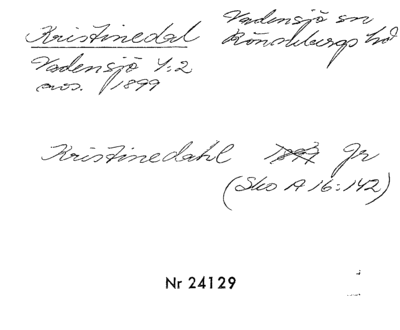 Kristinedal Vadensjö sn
Vadensjö 4:2 Rönnebergs hd
avs. 1899
Kristinedahl Jr
(Sko A 16:142)
Nr 24129